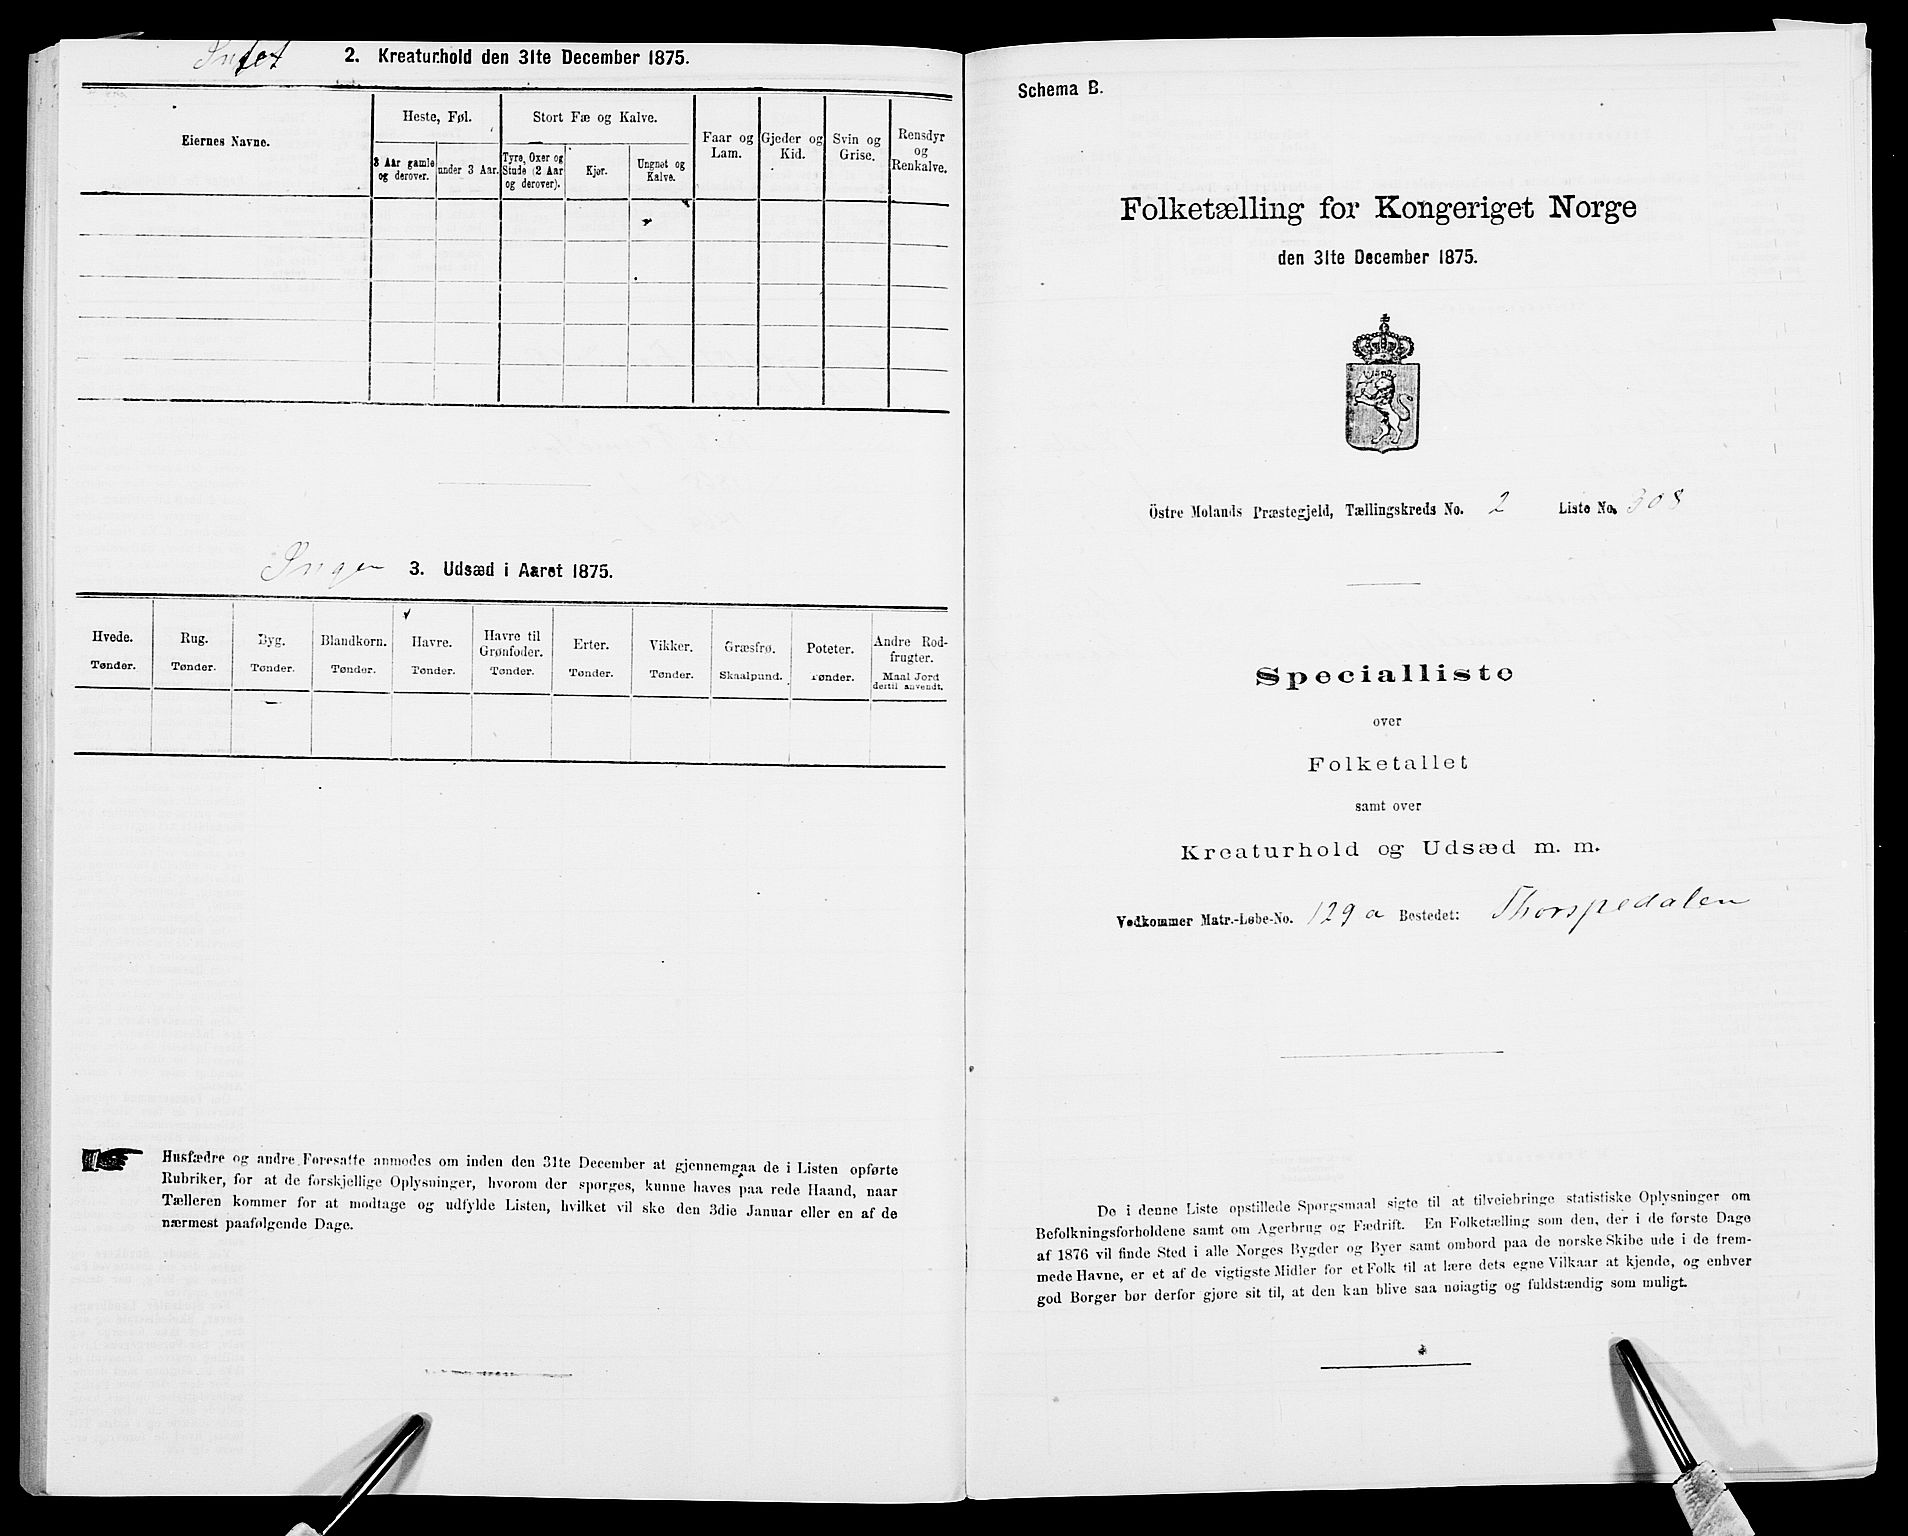 Intet 2. Kreaturhold den 31te December 1875.
Eiernes Navne.
Heste, Føl.
3 Aar gamle og derover.
under 3 Aar.
Stort Fæ og Kalve.
Tyre, Oxer og Stude (2 Aar og derover).
Kjør.
Ungnet og Kalve.
Faar og Lam.
Gjeder og Kid.
Svin og Grise.
Rensdyr og Renkalve.
Ingen 3. Udsæd i Aaret 1875.
Hvede. Tønder.
Rug. Tønder.
Byg. Tønder.
Blandkorn. Tønder.
Havre. Tønder.
Havre til Grønfoder. Tønder.
Erter. Tønder.
Vikker. Tønder.
Græsfrø. Skaalpund.
Poteter. Tønder.
Andre Rodfrugter. Maal Jord dertil anvendt.
Husfædre og andre Foresatte anmodes om inden den 31te December at gjennemgaa de i Listen opførte
Rubriker, for at de forskjellige Oplysninger, hvorom der spørges, kunne haves paa rede Haand, naar
Tælleren kommer for at modtage og udfylde Listen, hvilket vil ske den 3die Januar eller en af de
nærmest paafølgende Dage.
Schema B.
Folketælling for Kongeriget Norge
den 31te December 1875.
Östre Molands Præstegjeld, Tællingskreds No. 2 Liste No. 308
Specialliste
over
Folketallet
samt over
Kreaturhold og Udsæd m. m.
Vedkommer Matr.-Løbe-No. 129a Bostedet: Thorspedalen
De i denne Liste opstillede Spørgsmaal sigte til at tilveiebringe statistiske Oplysninger om
Befolkningsforholdene samt om Agerbrug og Fædrift. En Folketælling som den, der i de første Dage
af 1876 vil finde Sted i alle Norges Bygder og Byer samt ombord paa de norske Skibe ude i de frem-
mede Havne, er et af de vigtigste Midler for et Folk til at lære dets egne Vilkaar at kjende, og enhver
god Borger bør derfor gjøre sit til, at den kan blive saa nøiagtig og fuldstændig som muligt.